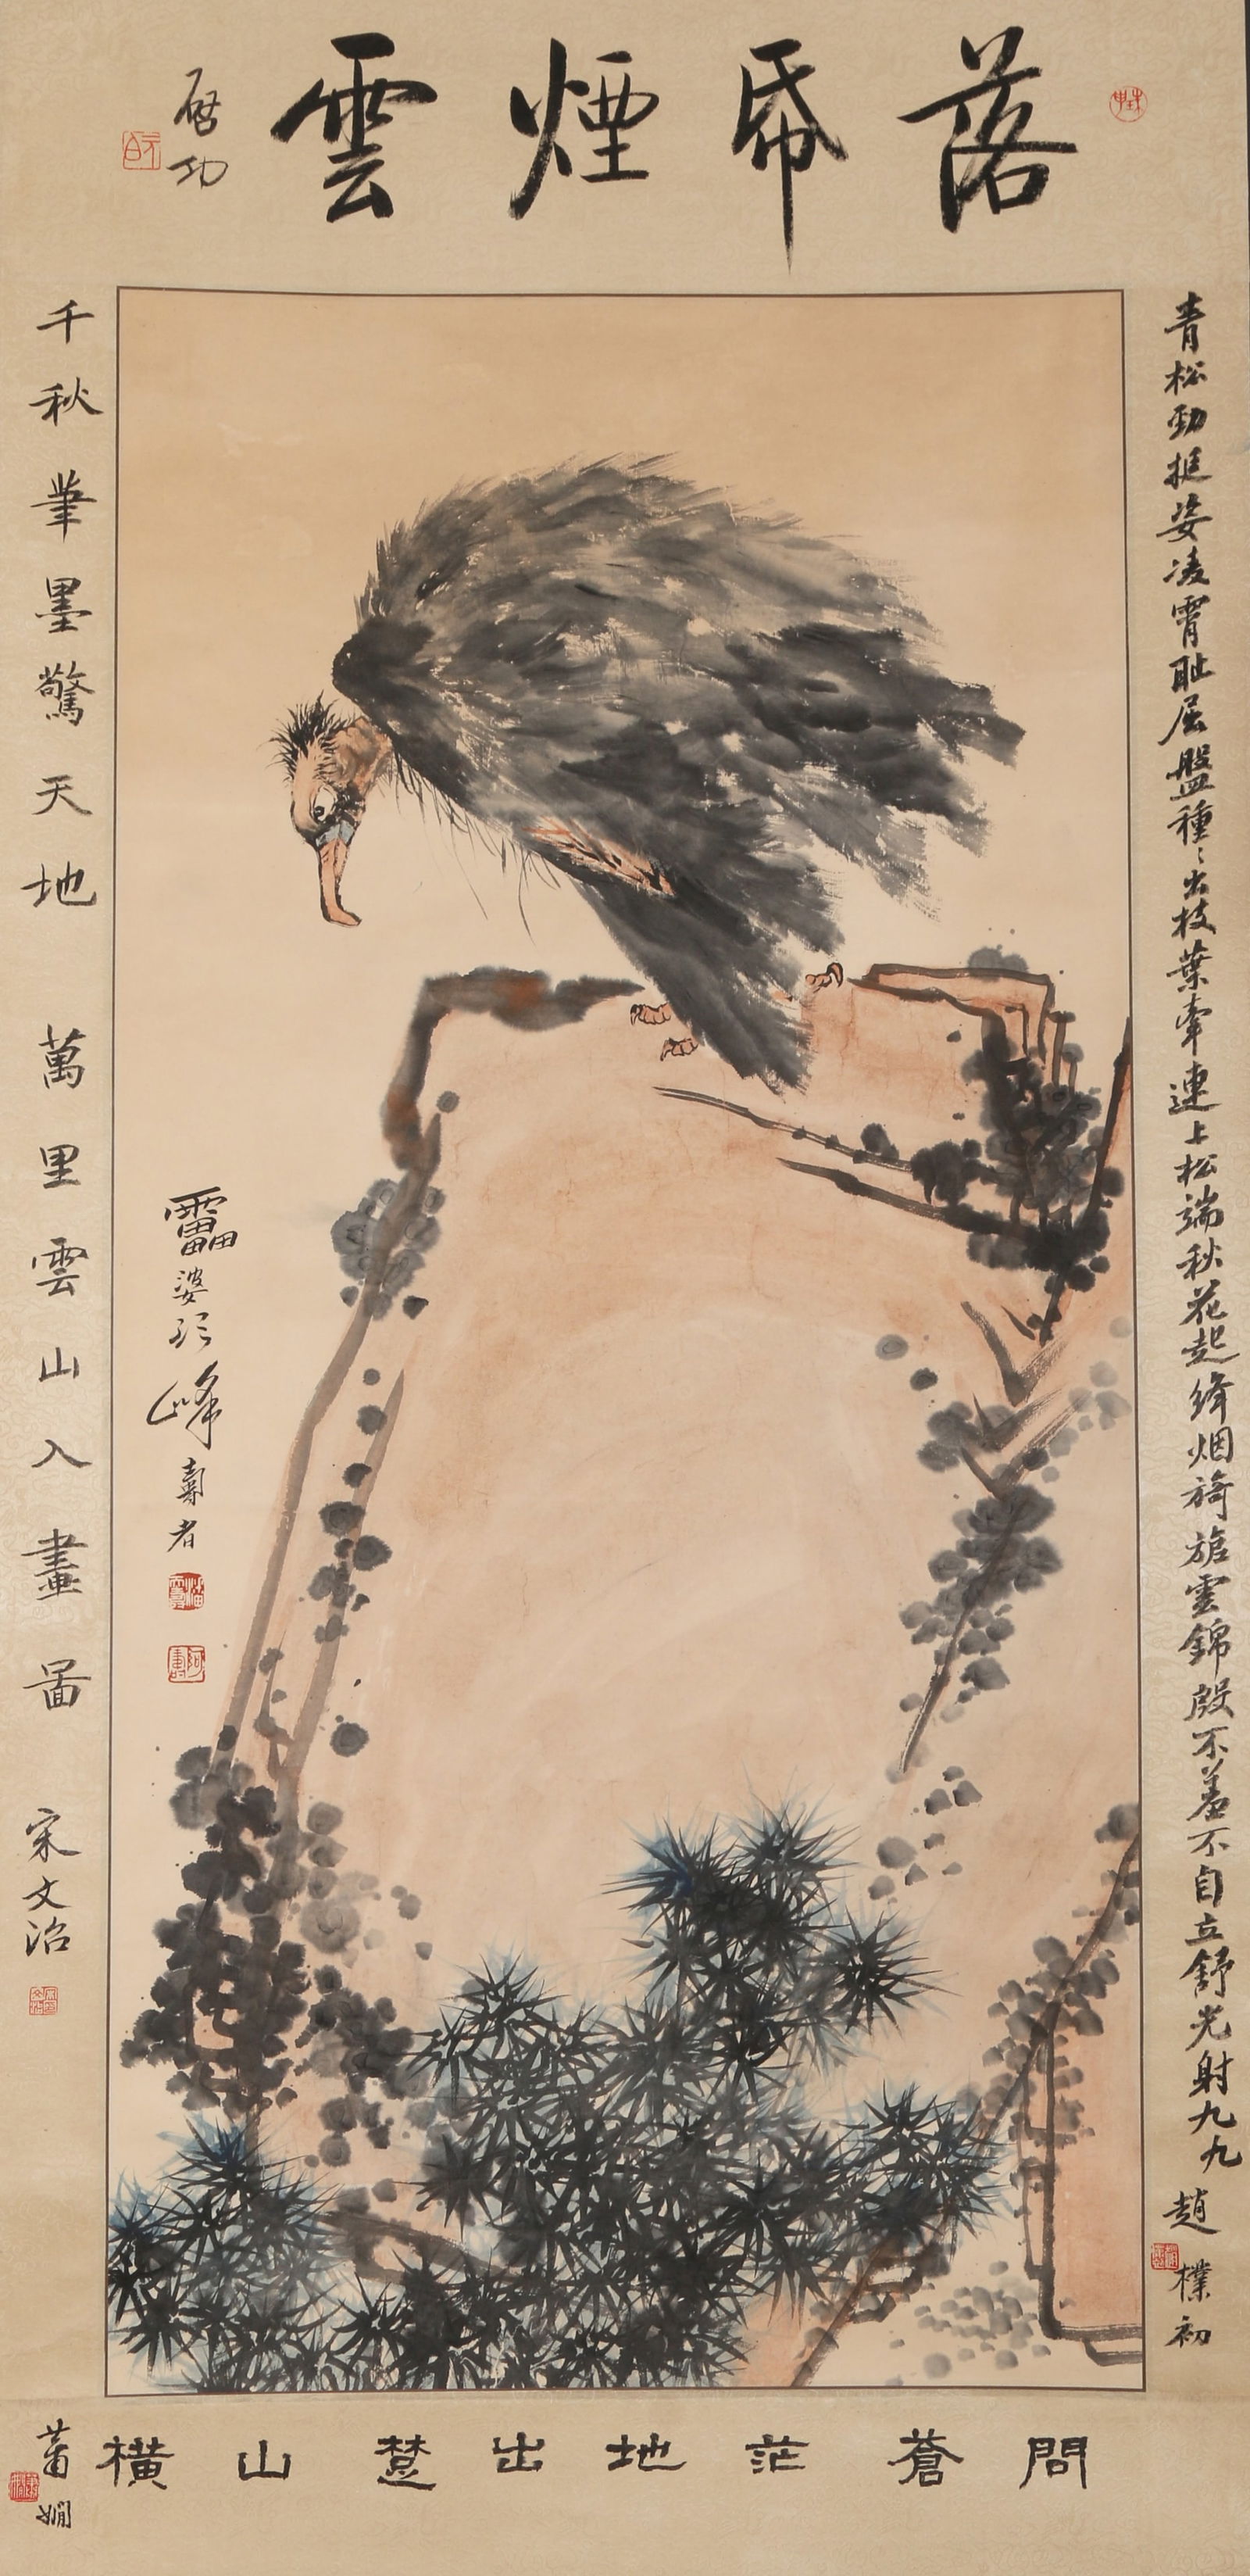 落帋煙雲
啟功
青松勁挺姿凌霄恥屈盤種〻出枝葉牽連上松端秋花起絳烟旖旎雲錦殷不羞不自立舒光射九九
趙樸初
雷婆頭峰壽者
潘天壽
阿壽
千秋筆墨驚天地
萬里雲山入畫圖
宋文治
問蒼茫地出楚山橫
蕭嫻